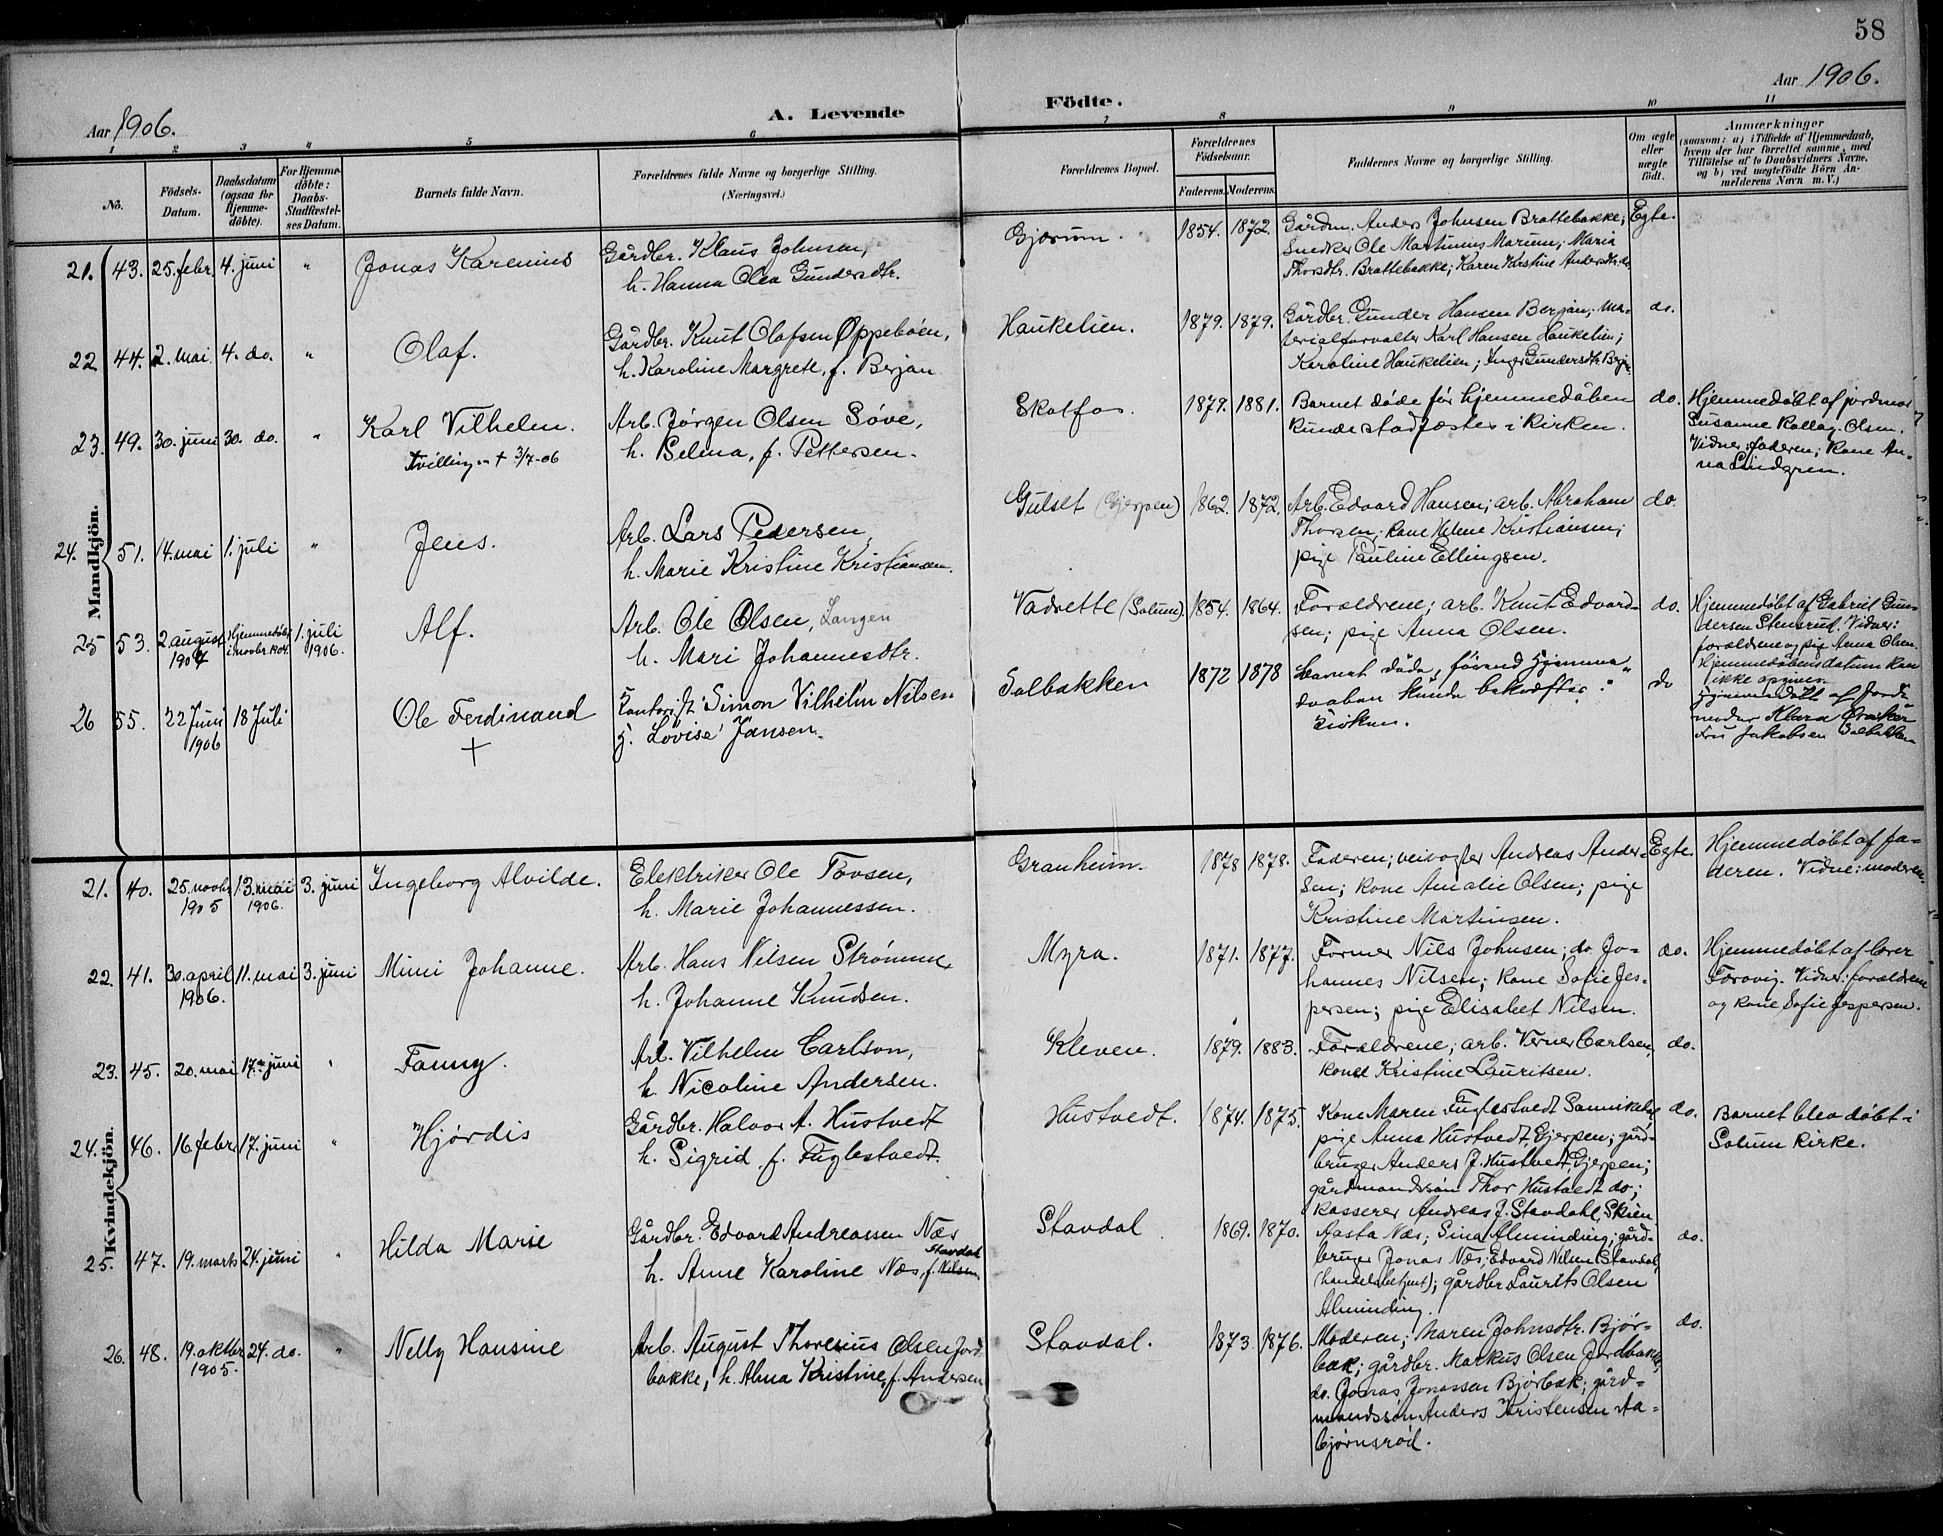 58
Aar 1906.
A. Levende Födte.
Aar 1906.
1 2 3 4 5 6 7 8 9 10 11
No.
Födsels-Datum.
Daabsdatum (ogsaa for Hjemmedöbte).
For Hjemmedöbte: Daabs-Stadfæstelses Datum.
Barnets fulde Navn.
Forældrenes fulde Navne og borgerlige Stilling. (Næringsvei.)
Forældrenes Bopæl.
Forældrenes Födselsaar.
Faderens. Moderens.
Faddernes Navne og borgerlige Stilling.
Om ægte eller uægte födt.
Anmærkninger
(saasom: a) i Tilfælde af Hjemmedaab, hvem der har forrettet samme, med Tilföielse af to Daabsvidners Navne, og b) ved uægtefödte Börn Anmelderens Navn m. V.)
Mandkjön.
21. 43. 25. febr. 4. juni " Jonas Karenius
Gårdbr. Klaus Johnsen,
h. Hanna Olea Gundersdtr.
Gjerum. 1854. 1872.
Gårdm. Anders Johnsen Brattebakke;
Snedker Ole Martinius Marum; Maria
Thorsdtr. Brattebakke; Karen Kristine Andersdtr. do.
Egte.
22. 44. 2. mai 4. do. " Olaf.
Gårdbr. Knut Olafsen Oppebøen,
h. Karoline Margrete, f. Berjan
Haukelien. 1879. 1879.
Gårdbr. Gunder Hansen Berjan; ma-
terialforvalter Karl Hansen Haukelien;
Karoline Haukelien; Inger Gundersdtr. Berjan.
do.
23. 49. 30. juni 30. do. " Karl Vilhelm.
Tvilling. † 3/7-06
Arb. Jörgen Olsen Söve,
h. Selma, f. Pettersen.
Skotfos. 1879. 1881.
Barnet døde før hjemmedåben
kunde stadfæstes i kirken.
do.
Hjemmedøbt af jordmor
Susanne Rollag-Olsen.
Vidner: faderen; kone An-
na Lindgren.
24. 51. 14. mai 1. juli " Jens.
Arb. Lars Pedersen
h. Marie Kristine Kristiansen.
Gulset (Gjerpen) 1862. 1872.
Arb. Edvard Hansen; arb. Abraham
Thorsen; kone Helene Kristiansen;
pige Pauline Ellingsen.
do.
25 53. 2. august 1904 Hjemmedøbt i novbr. 1904. 1. juli 1906. Alf.
Arb. Ole Olsen, Langen
h. Mari Johannesdtr.
Vadrette (Solum). 1854. 1864.
Forældrene; arb. Knut Edvard-
sen; pige Anna Olsen.
do.
Hjemmedøbt af Gabriel Gun-
dersen Stensrud. Vidner:
forældrene og pige Anna Olsen.
Hjemmedåbens datum kan
ikke opgives.
26 55. 22 Juni 1906 18 Juli Ole Ferdinand
†
Kontorist Simon Vilhelm Nilsen
h. Lovise Jansen.
Solbakken 1872 1878
Barnet døde, førend hjemme-
daaben kunde bekræftes i
kirken.
do
Hjemmedøbt af Jord-
moder Klara
Fru Jakobsen Solbakken
Kvindekjön.
21. 40. 25. novbr. 1905 13. mai 1906. 3. juni Ingeborg Alvilde.
Elektriker Ole Tovsen,
h. Marie Johannessen.
Granheim. 1878 1878.
Faderen; veivogter Andreas Ander-
sen; kone Amalie Olsen; pige
Kristine Martinsen.
Egte.
Hjemmedøbt af fa-
deren. Vidne: moderen.
22. 41. 30. april 1906. 11. mai 3. juni Mimi Johanne.
Arb. Hans Nilsen Strømme
h. Johanne Knudsen.
Myra. 1871. 1877.
Former Nils Johnsen; do. Jo-
hannes Nilsen; kone Sofie Jes-
persen; pige Elisabet Nilsen.
do.
Hjemmedøbt af lærer
Farovig. Vidner: forældrene
og kone Sofie Jespersen.
23. 45. 20. mai 17. juni " Fanny.
Arb. Vilhelm Carlson,
h. Nicoline Andersen.
Kleven. 1879. 1883.
Forældrene; arb. Verner Carlsen,
kone Kristine Lauritsen.
do.
24. 46. 16. febr. 17. juni " Hjördis
Gårdbr. Halvor A. Hustvedt
h. Sigrid, f. Fuglestvedt.
Hustvedt. 1874. 1875.
Kone Maren Fuglestvedt Sannikedal,
pige Anna Hustvedt, Gjerpen; gård-
bruger Anders J. Hustvedt, Gjerpen;
gårdmandssøn Thor Hustvedt do.;
kasserer Andreas J. Stavdahl, Skien
do.
Barnet blev døbt i
Solum kirke.
25. 47. 19. marts 24. juni " Hilda Marie
Gårdbr. Edvard Andreassen Næs
Stavdal
h. Anne Karoline Næs, f. Nilsen
Stavdal 1869. 1870.
Aasta Næs; Sina Alminding; gård-
bruger Jonas Næs; Edvard Nilsen Stavdal,
(handelsbetjent); gårdbr. Laurits Olsen
Alminding.
do.
26. 48. 19. oktbr. 1905. 24. do. " Nelly Hansine
Arb. August Thoresius Olsen Jord-
bakke, h. Alma Kristine, f. Andersen
Stavdal. 1873 1876.
Moderen; Maren Johnsdtr. Bjør-
bæk; gårdbr. Markus Olsen Jordbakke,
do. Jonas Jonassen Bjørbæk; gård-
mandssøn Anders Kristensen Aa-
bjørnsrød.
do.